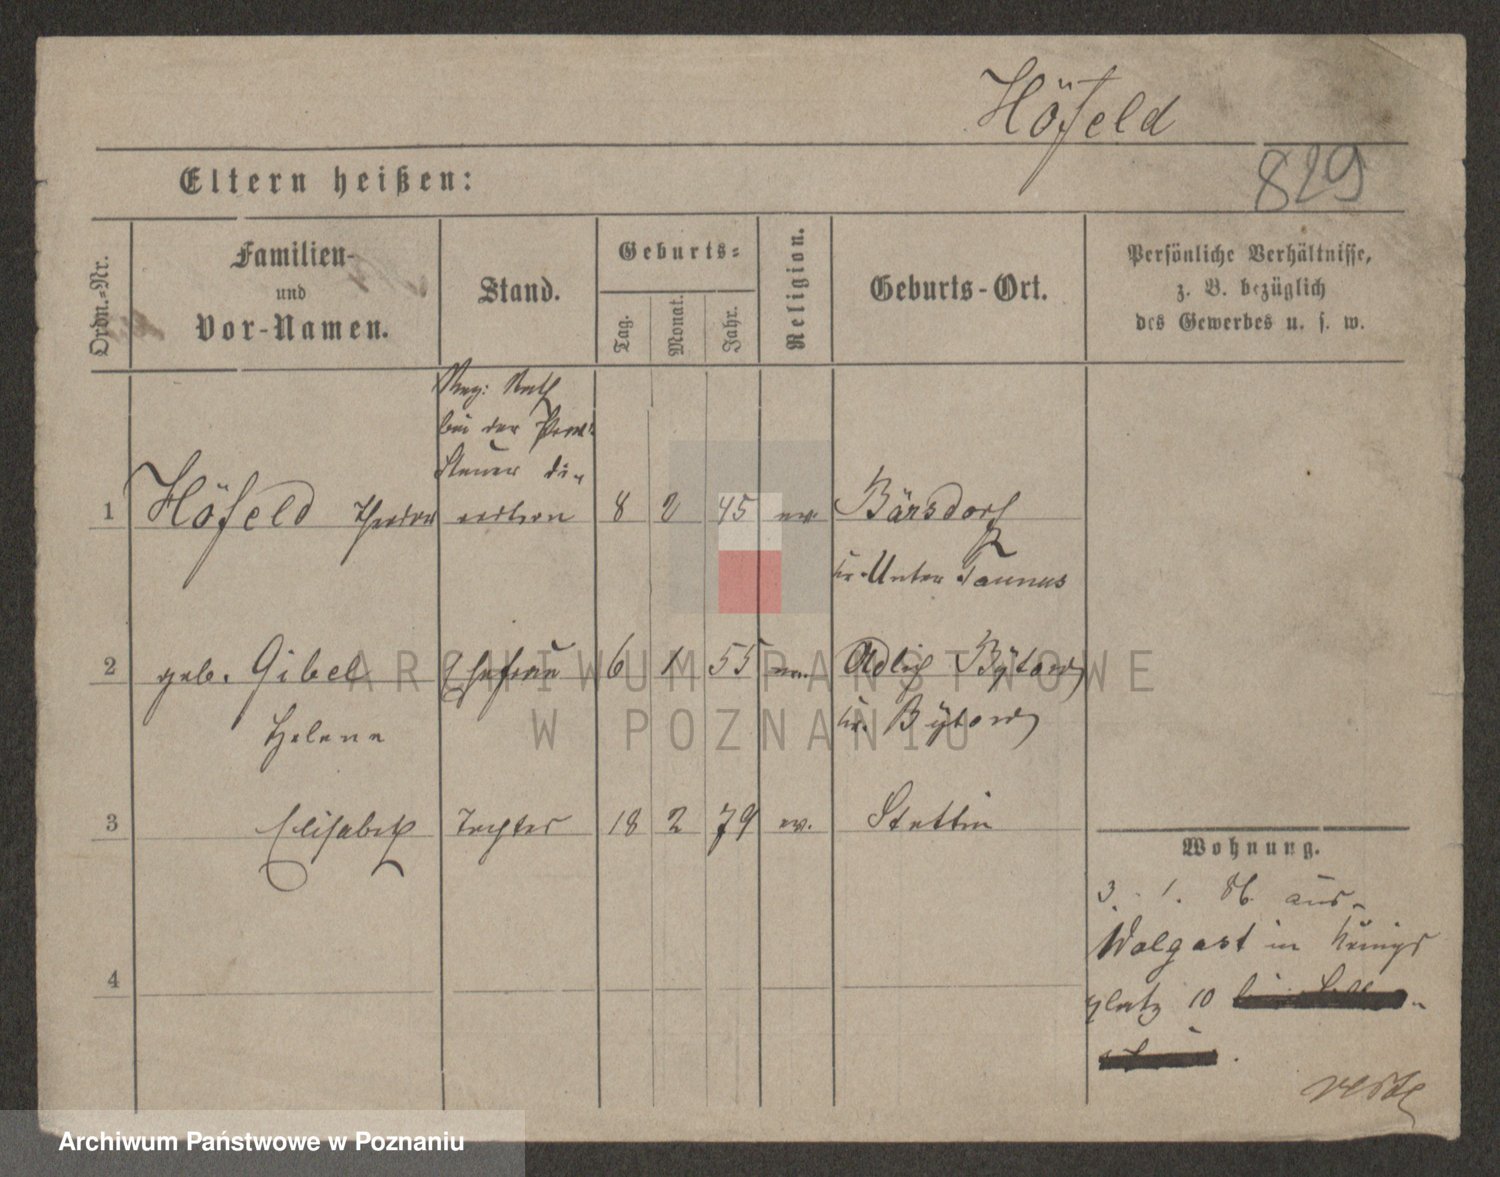 Höfeld
829
Eltern heißen:
Ordn.=Nr.
Familien-
und
Vor-Namen.
Stand.
Geburts=
Tag.
Monat.
Jahr.
Religion.
Geburts-Ort.
Persönliche Verhältnisse,
z. B. bezüglich
des Gewerbes u. s. w.
Reg: Rath
bei der Prov:
Steuer di-
1 Höfeld Theodor rection 8 2 45 ev Bärsdorf
Kr. Unter Taunus
2 geb. Gibel Ehefrau 6 1 55 ev. Adlig Bütow
Helene Kr. Bütow
3 Elisabeth Tochter 18 2 79 ev. Stettin
Wohnung.
3. 1. 86. aus
Wolgast in Königs
platz 10
4
ARCHIWUM PAŃSTWOWE
W POZNANIU
Archiwum Państwowe w Poznaniu